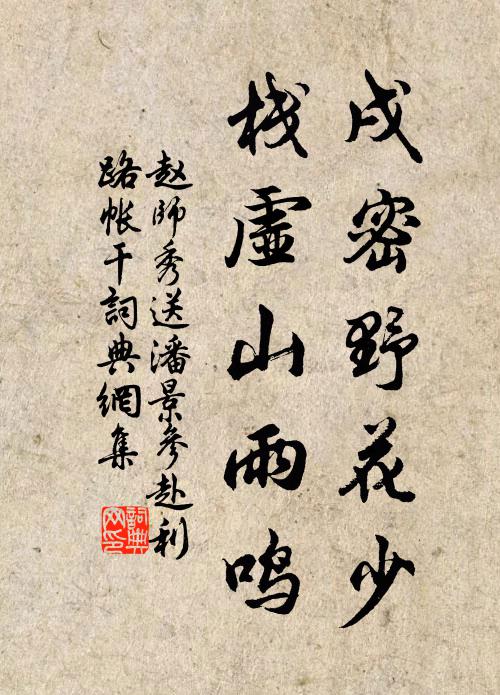 戍密野花少
栈虚山雨鸣
赵師秀送潘景參赴利
路帐干詞典網集
詞典
网印